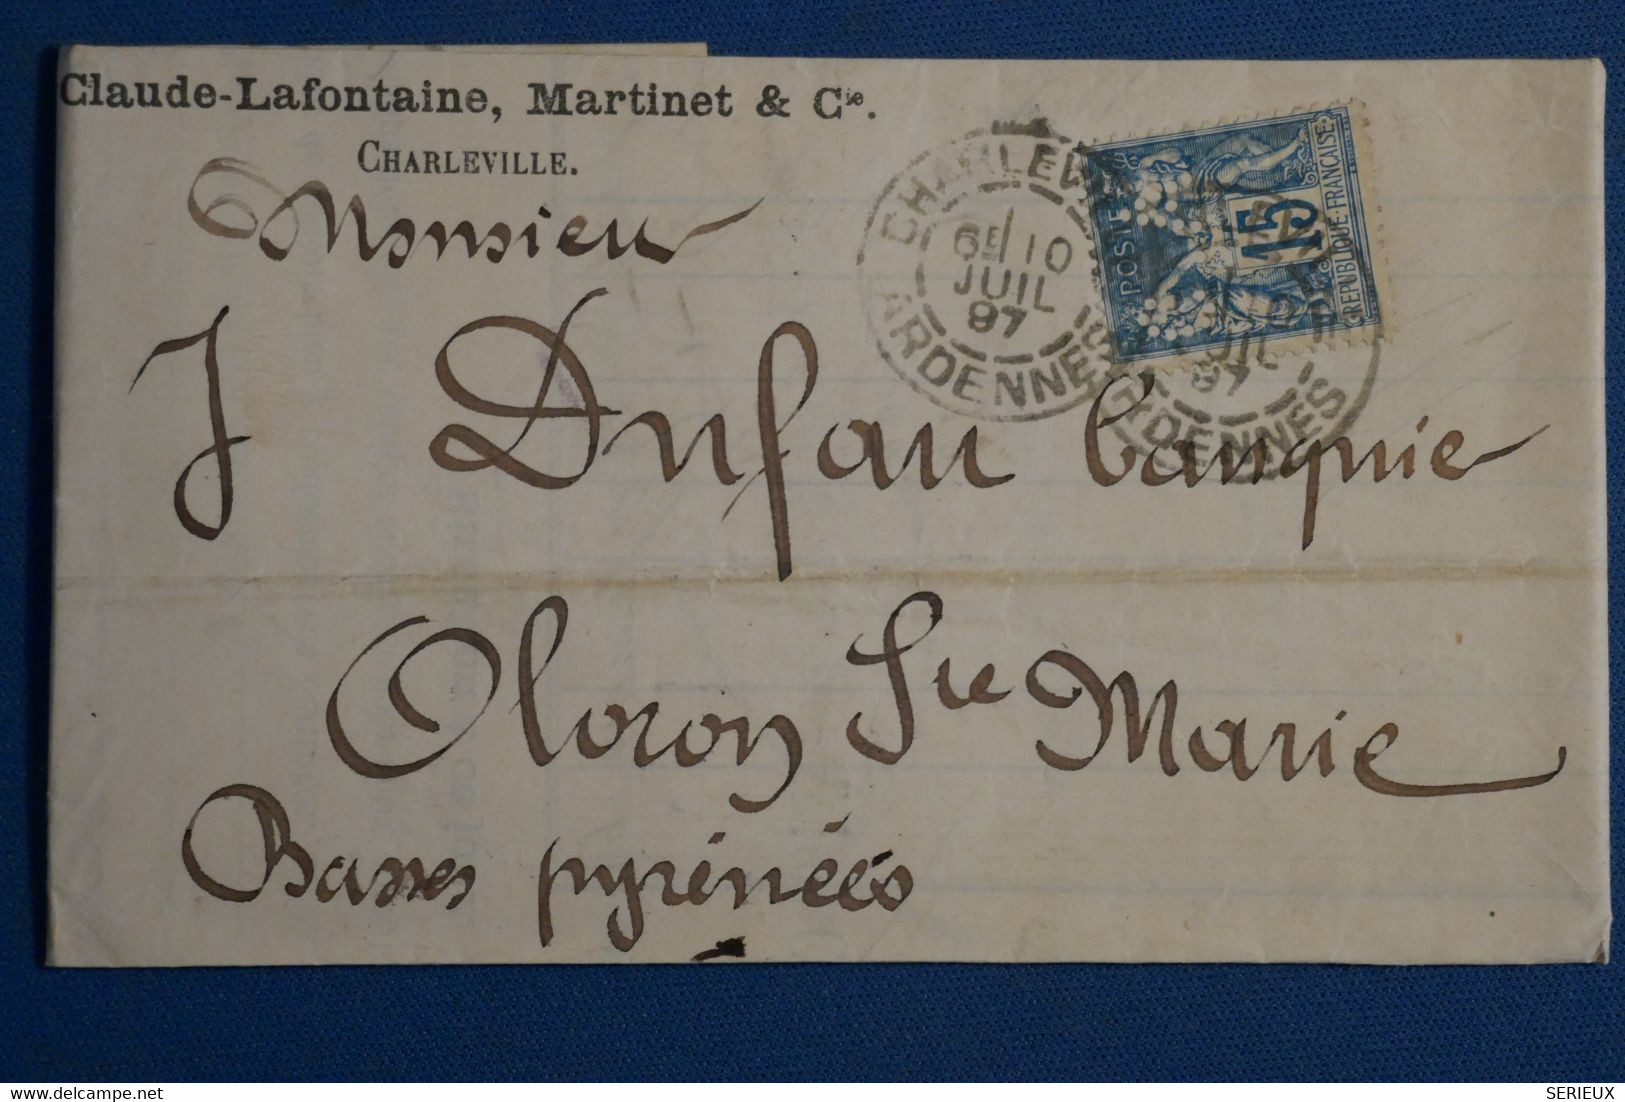 Claude-Lafontaine, Martinet & Cie.
CHARLEVILLE.
Monsieur
J Dufau banquier
Oloron Ste Marie
Basses pyrénées
CHARLEVILLE
6E 10
JUIL
97
ARDENNES
POSTES
15
REPUBLIQUE FRANÇAISE
JUIL
97
ARDENNES
delcampe.net
SERIEUX